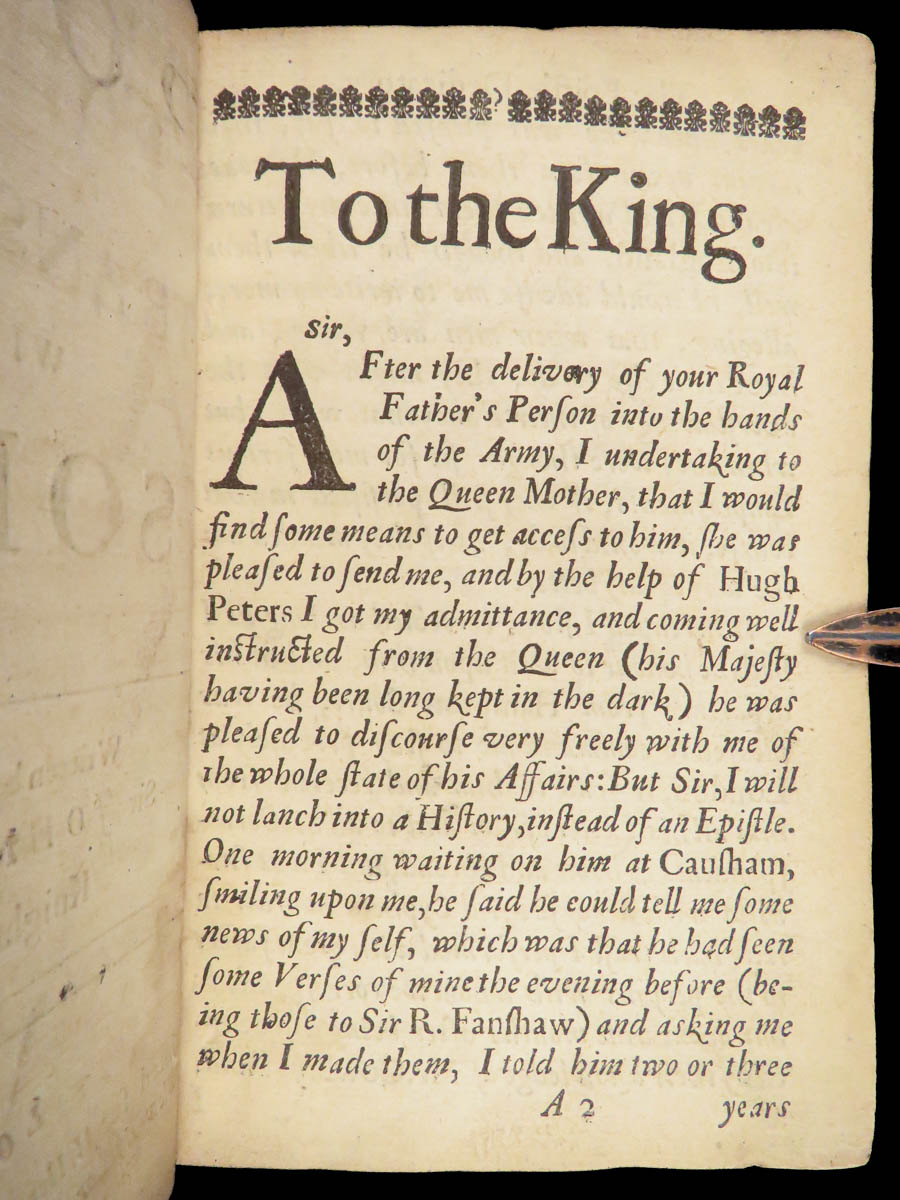 To the King.
Sir,
AFter the delivery of your Royal
Father's Perſon into the hands
of the Army, I undertaking to
the Queen Mother, that I would
find ſome means to get acceſs to him, ſhe was
pleaſed to ſend me, and by the help of Hugh
Peters I got my admittance, and coming well
inſtructed from the Queen (his Majeſty
having been long kept in the dark) he was
pleaſed to diſcourſe very freely with me of
the whole ſtate of his Affairs: But Sir, I will
not lanch into a Hiſtory, inſtead of an Epiſtle.
One morning waiting on him at Cauſham,
ſmiling upon me, he ſaid he eould tell me ſome
news of my ſelf, which was that he had ſeen
ſome Verſes of mine the evening before (be-
ing thoſe to Sir R. Fanſhaw) and asking me
when I made them, I told him two or three
A 2 years